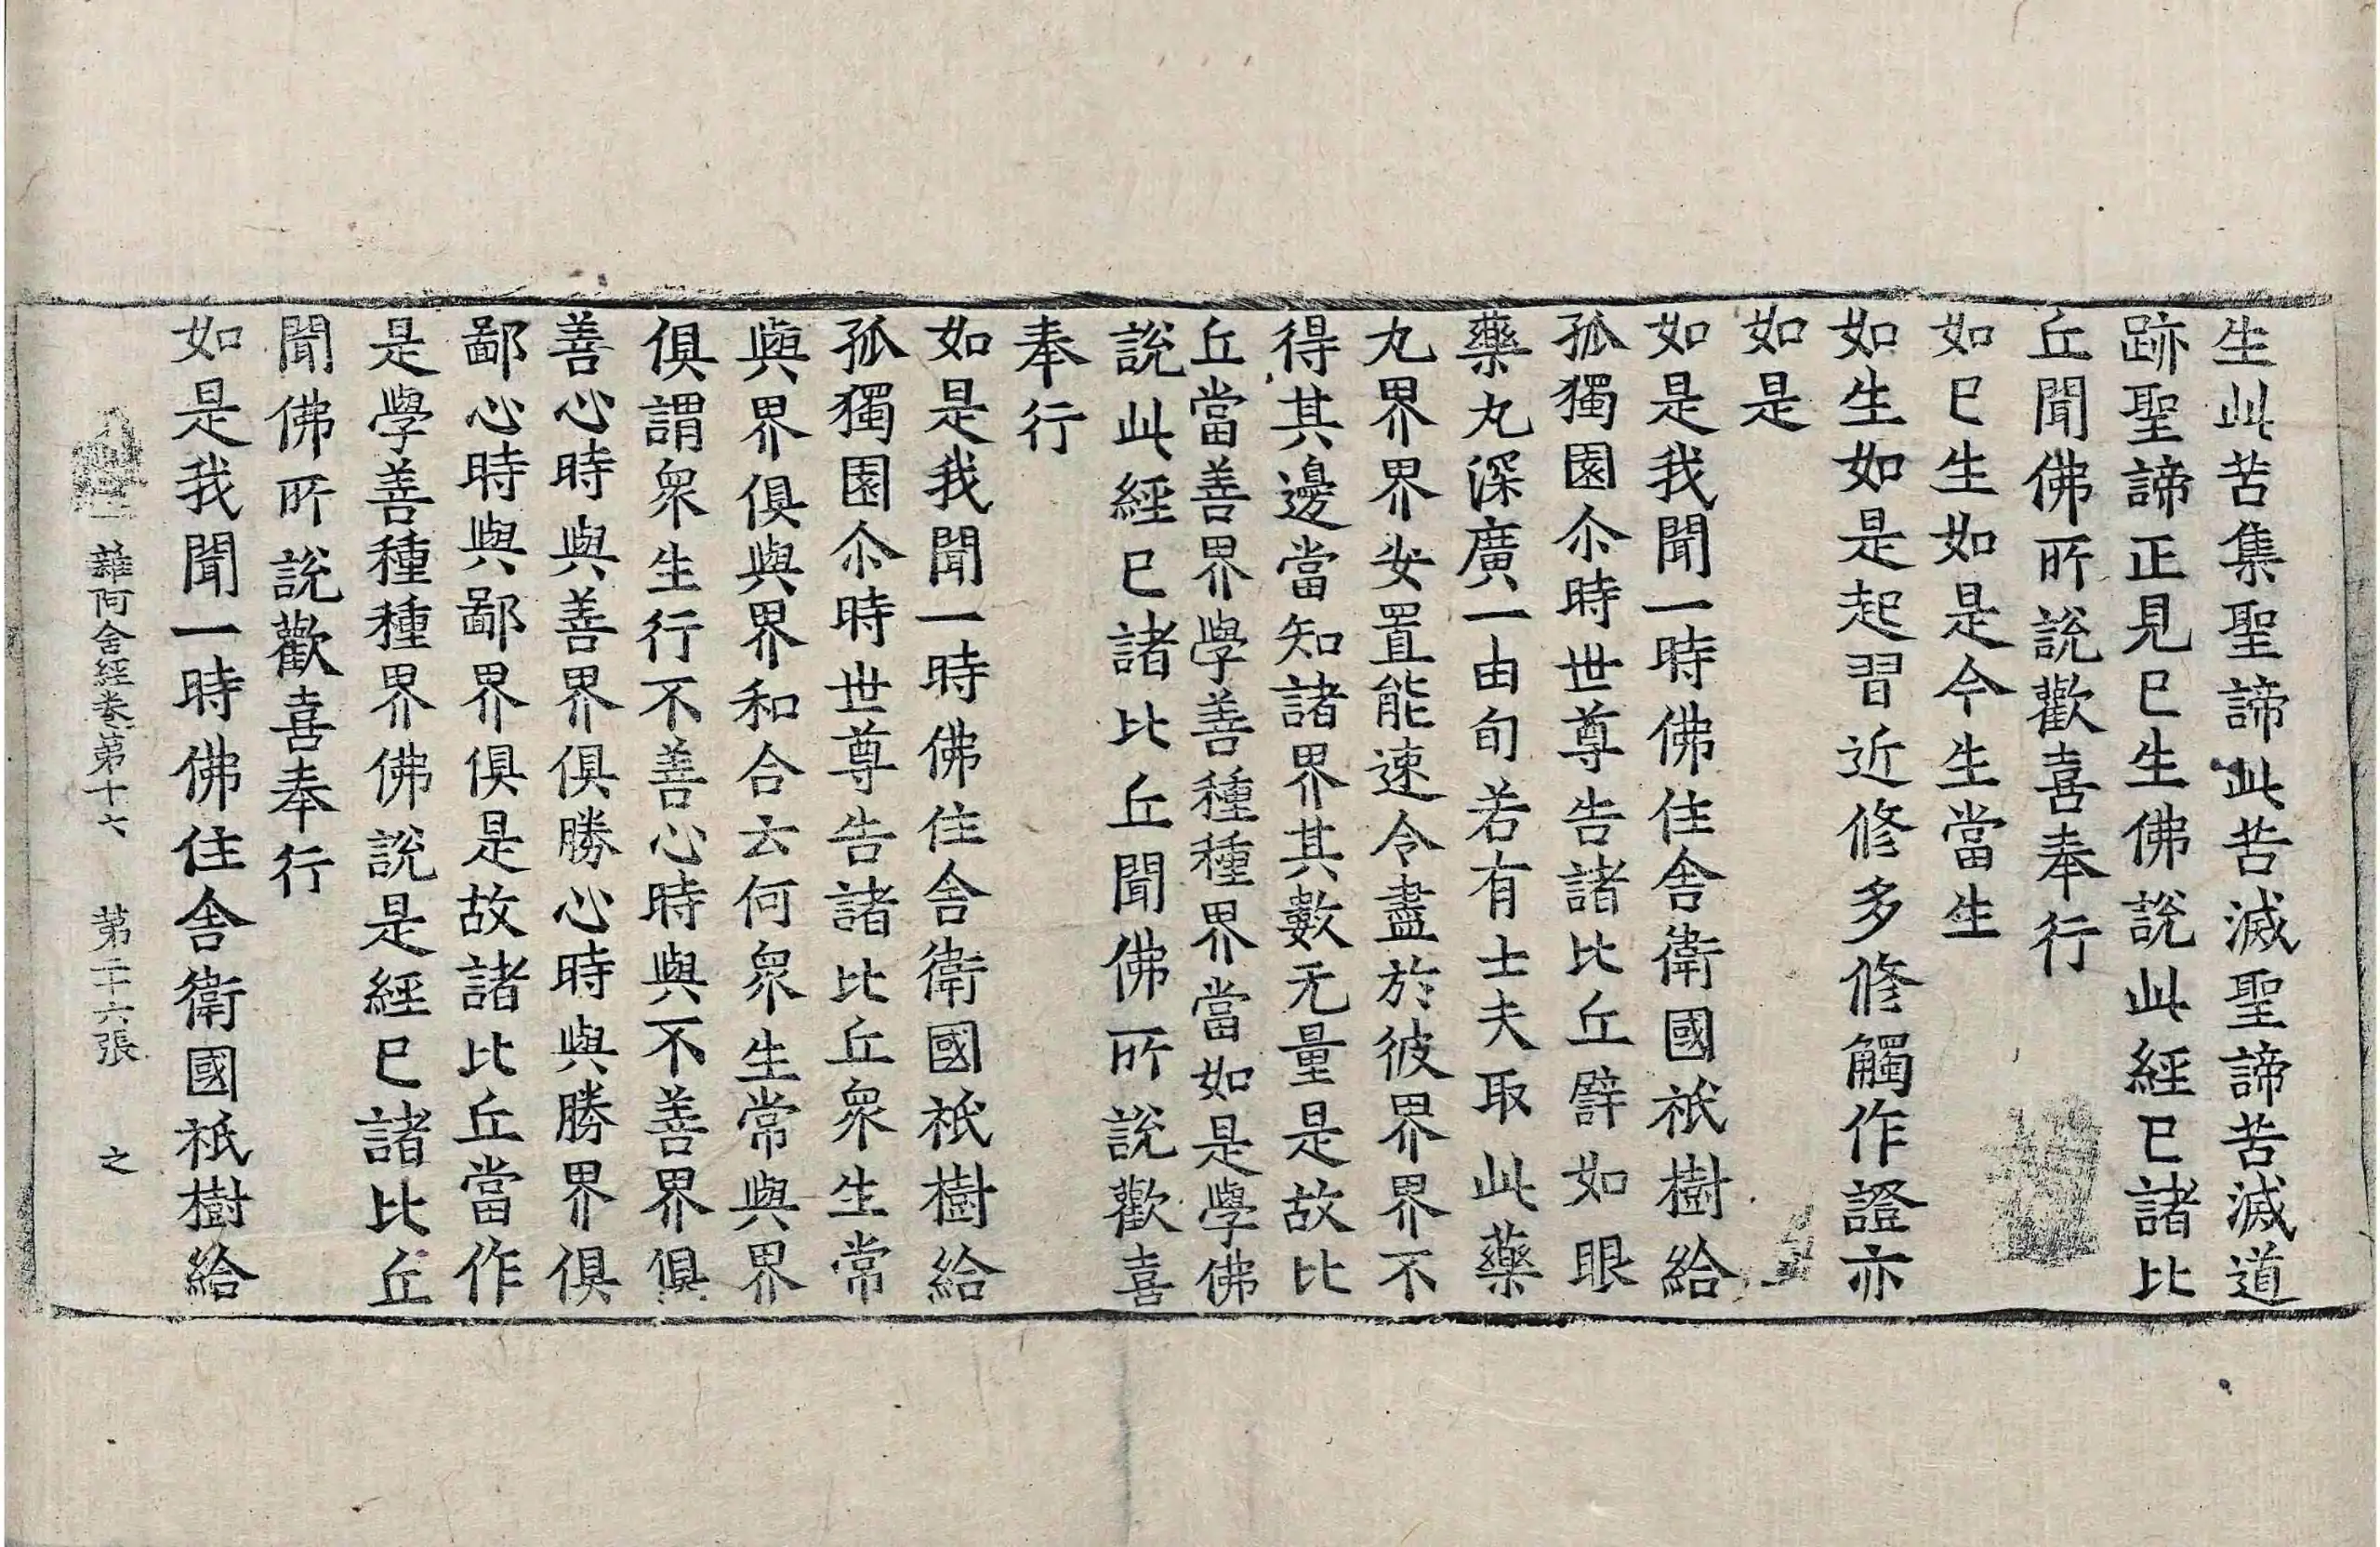 生此苦集聖諦此苦滅聖諦苦滅道
跡聖諦正見已生佛說此經已諸比
丘聞佛所說歡喜奉行
如已生如是今生當生
如生如是起習近修多修觸作證亦
如是
如是我聞一時佛住舍衛國祇樹給
孤獨園尒時世尊告諸比丘譬如眼
藥丸深廣一由旬若有士夫取此藥
丸界界安置能速令盡於彼界界不
得其邊當知諸界其數无量是故比
丘當善界學善種種界當如是學佛
說此經已諸比丘聞佛所說歡喜
奉行
如是我聞一時佛住舍衛國祇樹給
孤獨園尒時世尊告諸比丘衆生常
與界俱與界和合云何衆生常與界
俱謂衆生行不善心時與不善界俱
善心時與善界俱勝心時與勝界俱
鄙心時與鄙界俱是故諸比丘當作
是學善種種界佛說是經已諸比丘
聞佛所說歡喜奉行
如是我聞一時佛住舍衛國祇樹給
雜阿含經卷第十六 第二十六張 之